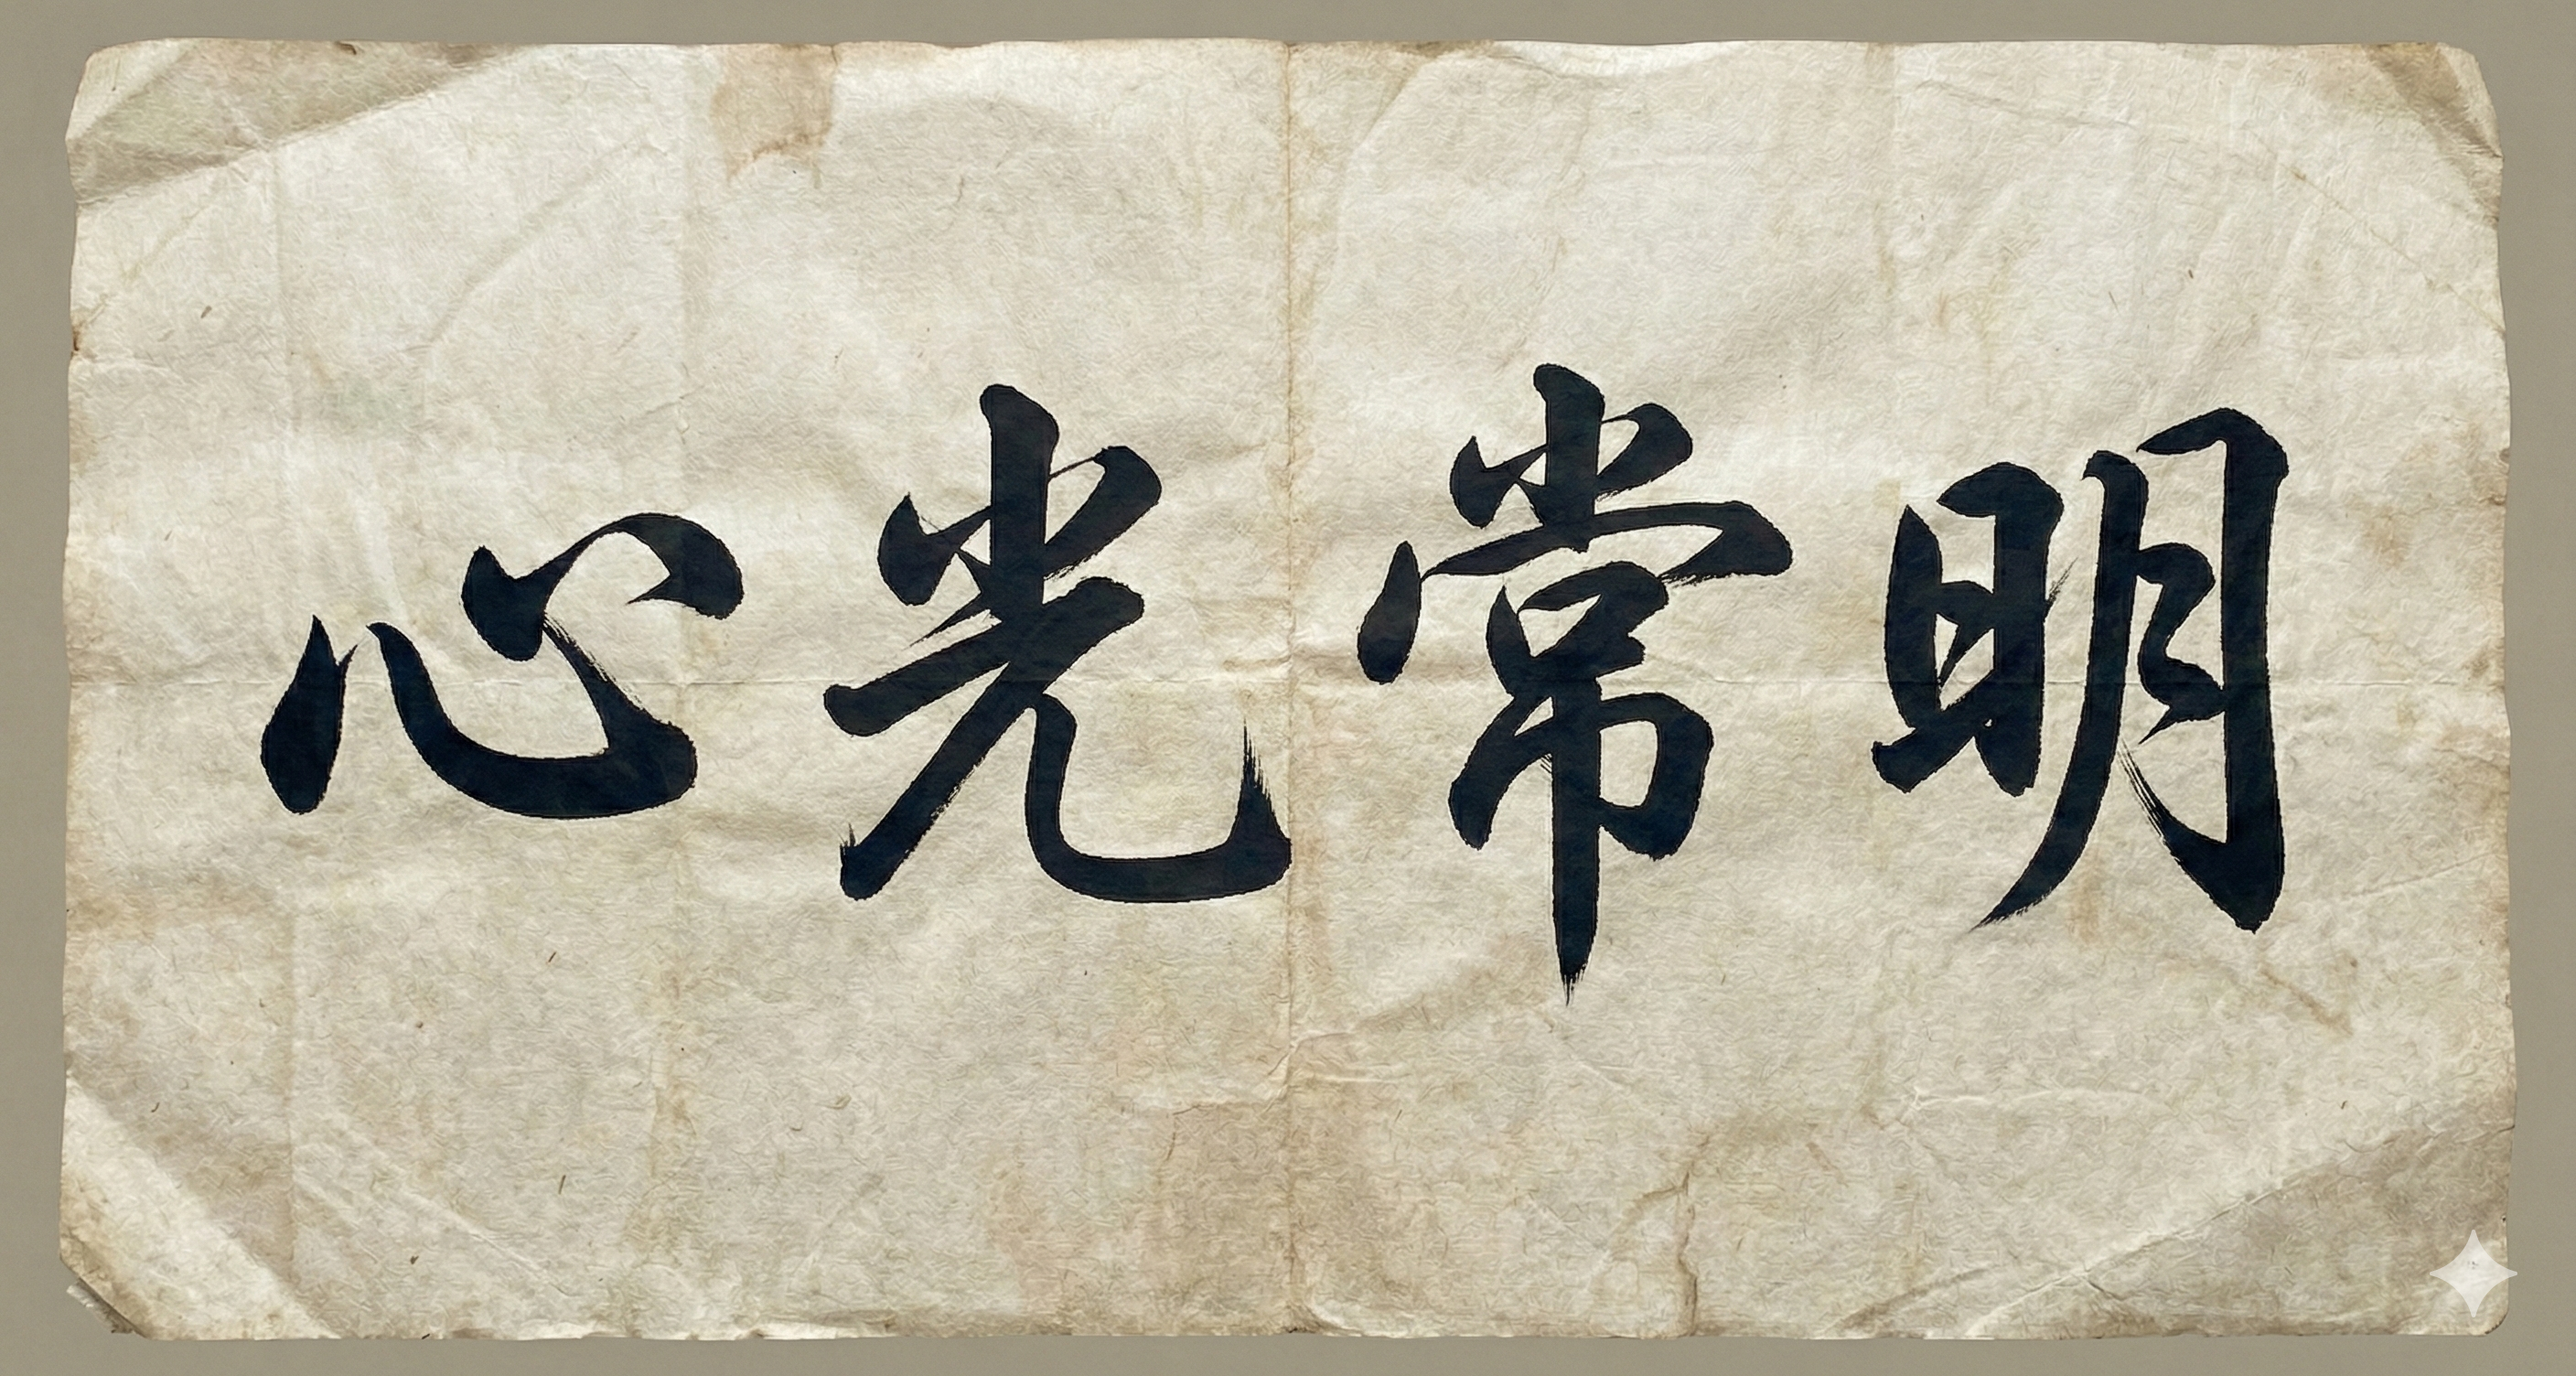 心光常明